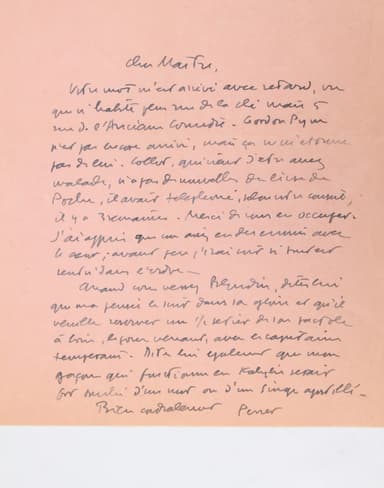 Cher Maître,
Votre mot m'est arrivé avec retard, vu
que j'habite plus rue de la Clé mais 5
rue de l'Ancienne Comédie. Gordon Pym
n'est pas encore arrivé, mais ça ne m'étonne
pas de lui. Collot, qui vient d'être assez
malade, n'a pas de nouvelles du livre de
Poche, il avait téléphoné, selon votre conseil,
il y a 3 semaines. Merci de vous en occuper.
J'ai appris que vous aviez eu des ennuis avec
le cœur; avant peu j'irai voir si tout est
rentré dans l'ordre.
Quand vous verrez Blondin, dites lui
que ma pensée le suit dans sa gloire et qu'il
veuille réserver un 1/2 setier de son pactole
à boire, le jour venant, avec le capitaine
Dites lui également que mon
garçon qui fonctionne en Kabylie serait
fort d'un mot ou d'un singe apostillé.
Bien cordialement Perret